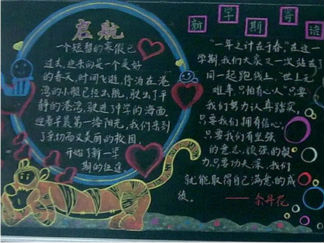 启航
一个短暂的寒假已
过去,迎来的是一个美好
的春天,时间飞逝,停泊在港
湾的小船已经出航,驶出了平
静的港湾,驶进了学的海面,
迎着早晨第一缕阳光,我们来到
了亲切而又美丽的校园
开始了新一学
期的征途
新学期寄语
“一年之计在于春”在这一
学期,我们大家又一次站在了
同一起跑线上,“世上无
难事,只怕有心人”只要
我们努力认真踏实,
只要我们拥有信心,
只要我们有坚强
的意志,顽强的毅
力,只要功夫深,我们
就能取得自己满意的成
绩。